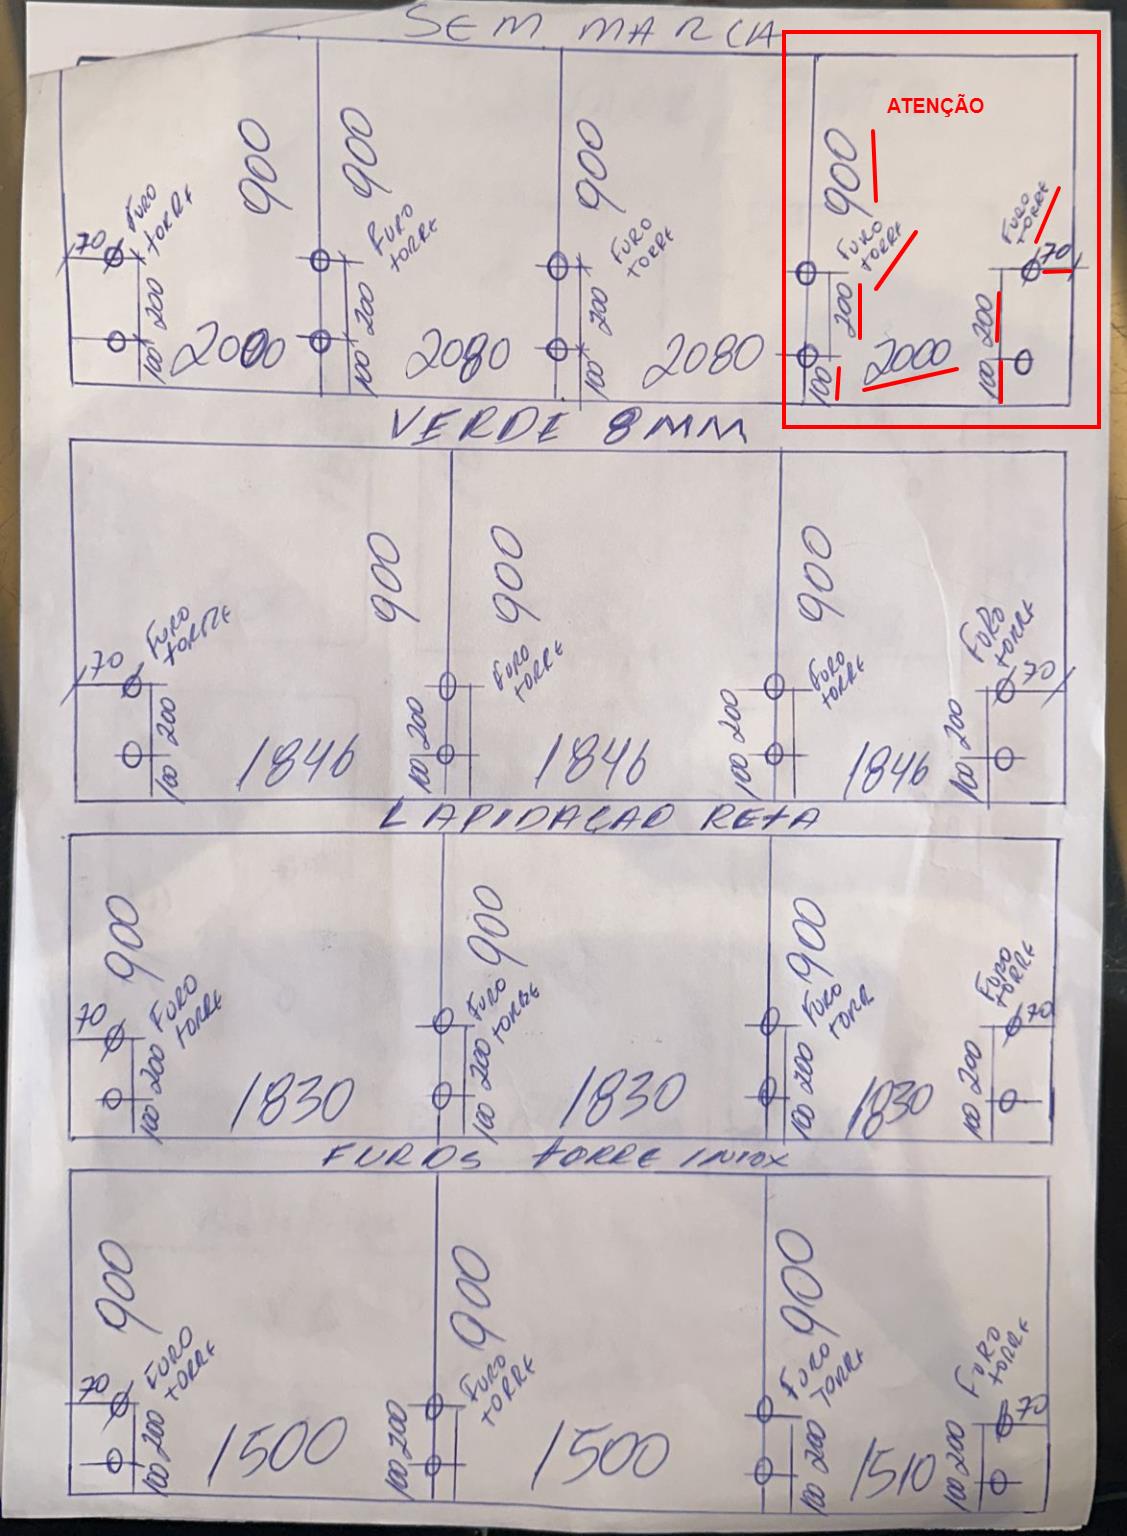 SEM MARCA
ATENÇÃO
900
900
900
900
FURO
TORRE
FURO
TORRE
FURO
TORRE
FURO
TORRE
FURO
TORRE
70
70
200
200
200
200
200
100
2000
100
2080
100
2080
100
2000
100
VERDE 8MM
900
900
900
FURO
TORRE
FURO
TORRE
FURO
TORRE
FURO
TORRE
70
70
200
200
200
200
100
1846
100
1846
100
1846
100
LAPIDAÇAO RETA
900
900
900
FURO
TORRE
FURO
TORRE
FURO
TORR
FURO
TORRE
70
70
200
200
200
200
100
1830
100
1830
100
1830
100
FUROS TORRE INIOX
900
900
900
FURO
TORRE
FURO
TORRE
FURO
TORRE
FURO
TORRE
70
70
200
200
200
200
100
1500
100
1500
100
1510
100